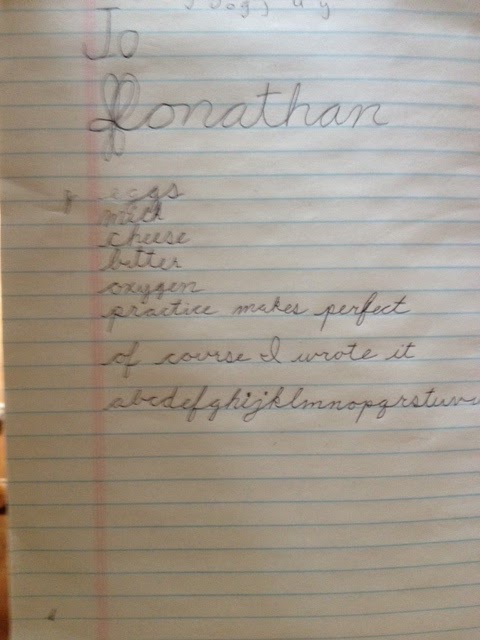 Jo
Jonathan
eggs
milk
cheese
butter
oxygen
practice makes perfect
of course I wrote it
abcdefghijklmnopqrstuv